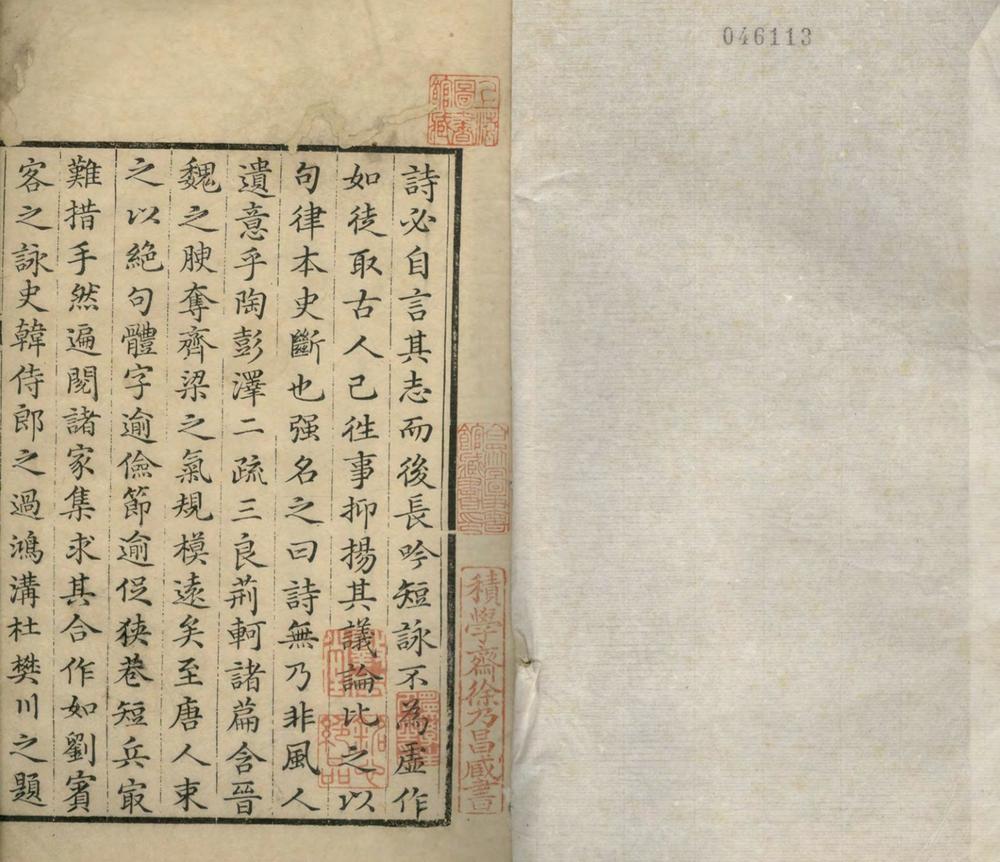 046113
上海圖書館藏
詩必自言其志而後長吟短詠不為虛作
如徒取古人已徃事抑揚其議論比之以
句律本史斷也强名之曰詩無乃非風人
遺意乎陶彭澤二疏三良荊軻諸篇含晉
魏之腴奪齊梁之氣規模遠矣至唐人束
之以絕句體字逾儉節逾促狹巷短兵㝡
難措手然遍閱諸家集求其合作如劉賓
客之詠史韓侍郎之過鴻溝杜樊川之題
積學齋徐乃昌臧書